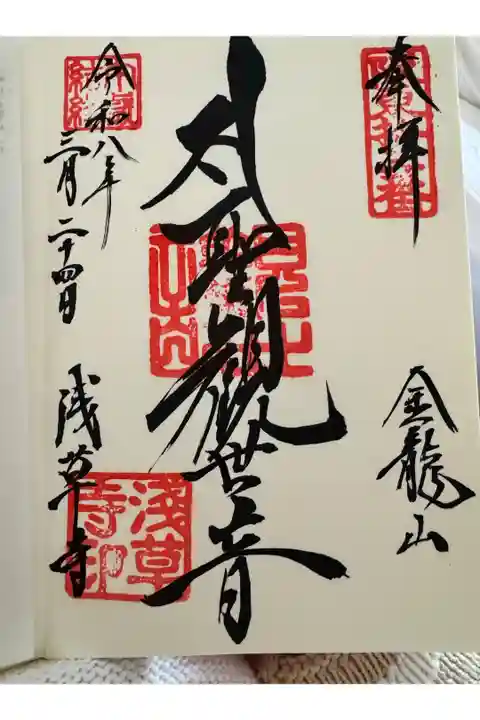 奉拝
金龍山
聖観世音
令和八年
三月二十四日
浅草寺
淺草
寺印